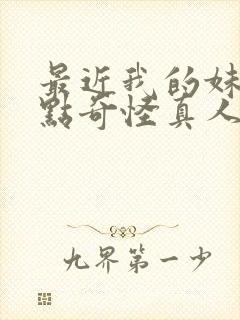 最近我的妹
點奇怪真人
九界第一少